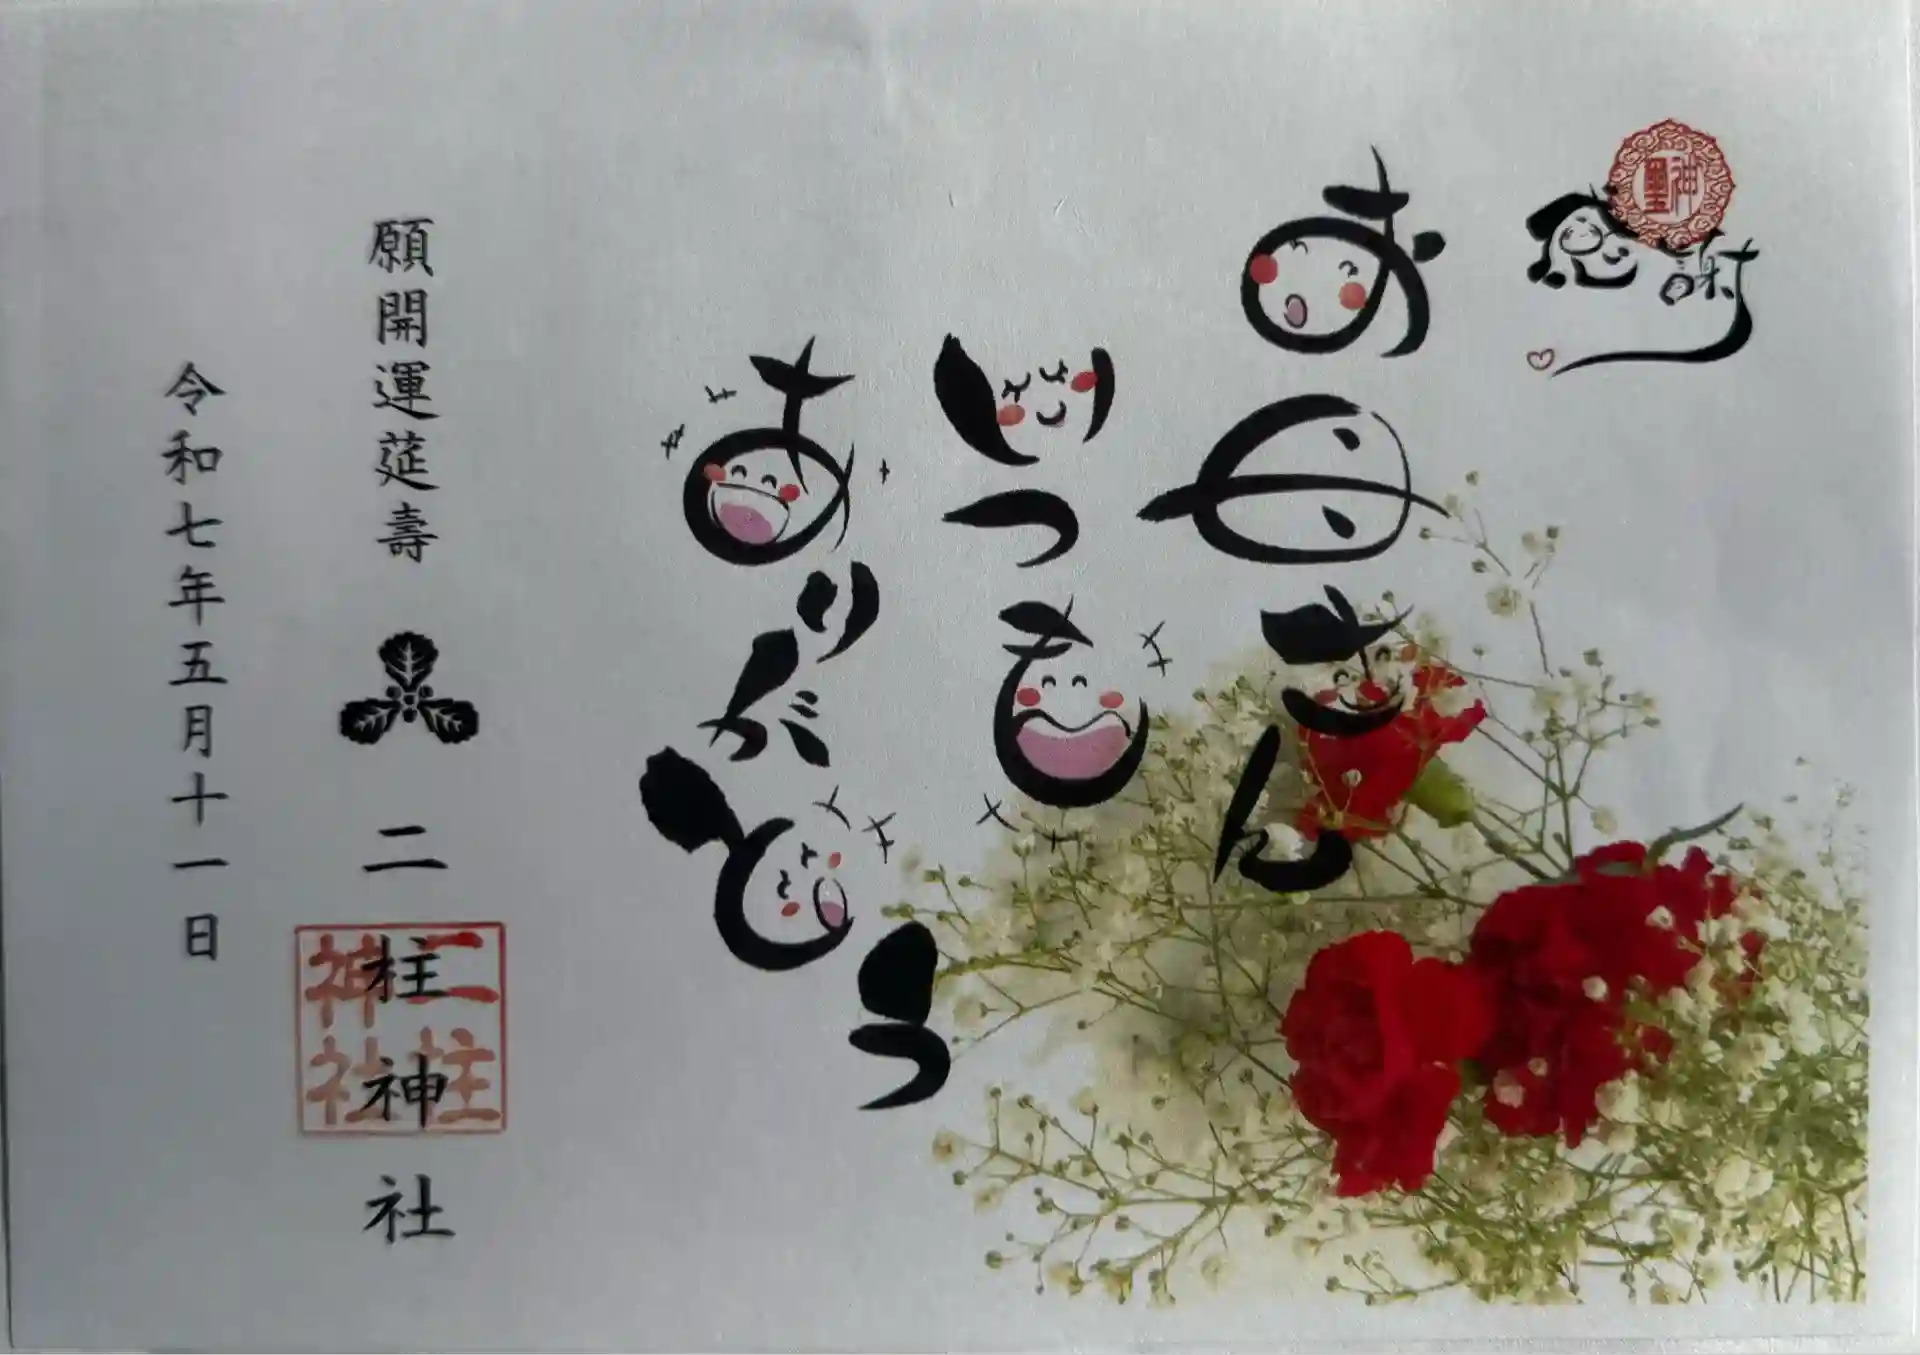 感謝
神璽
お母さん
いつも
ありがとう
願開運莚壽
二柱神社
二柱神社
令和七年五月十一日